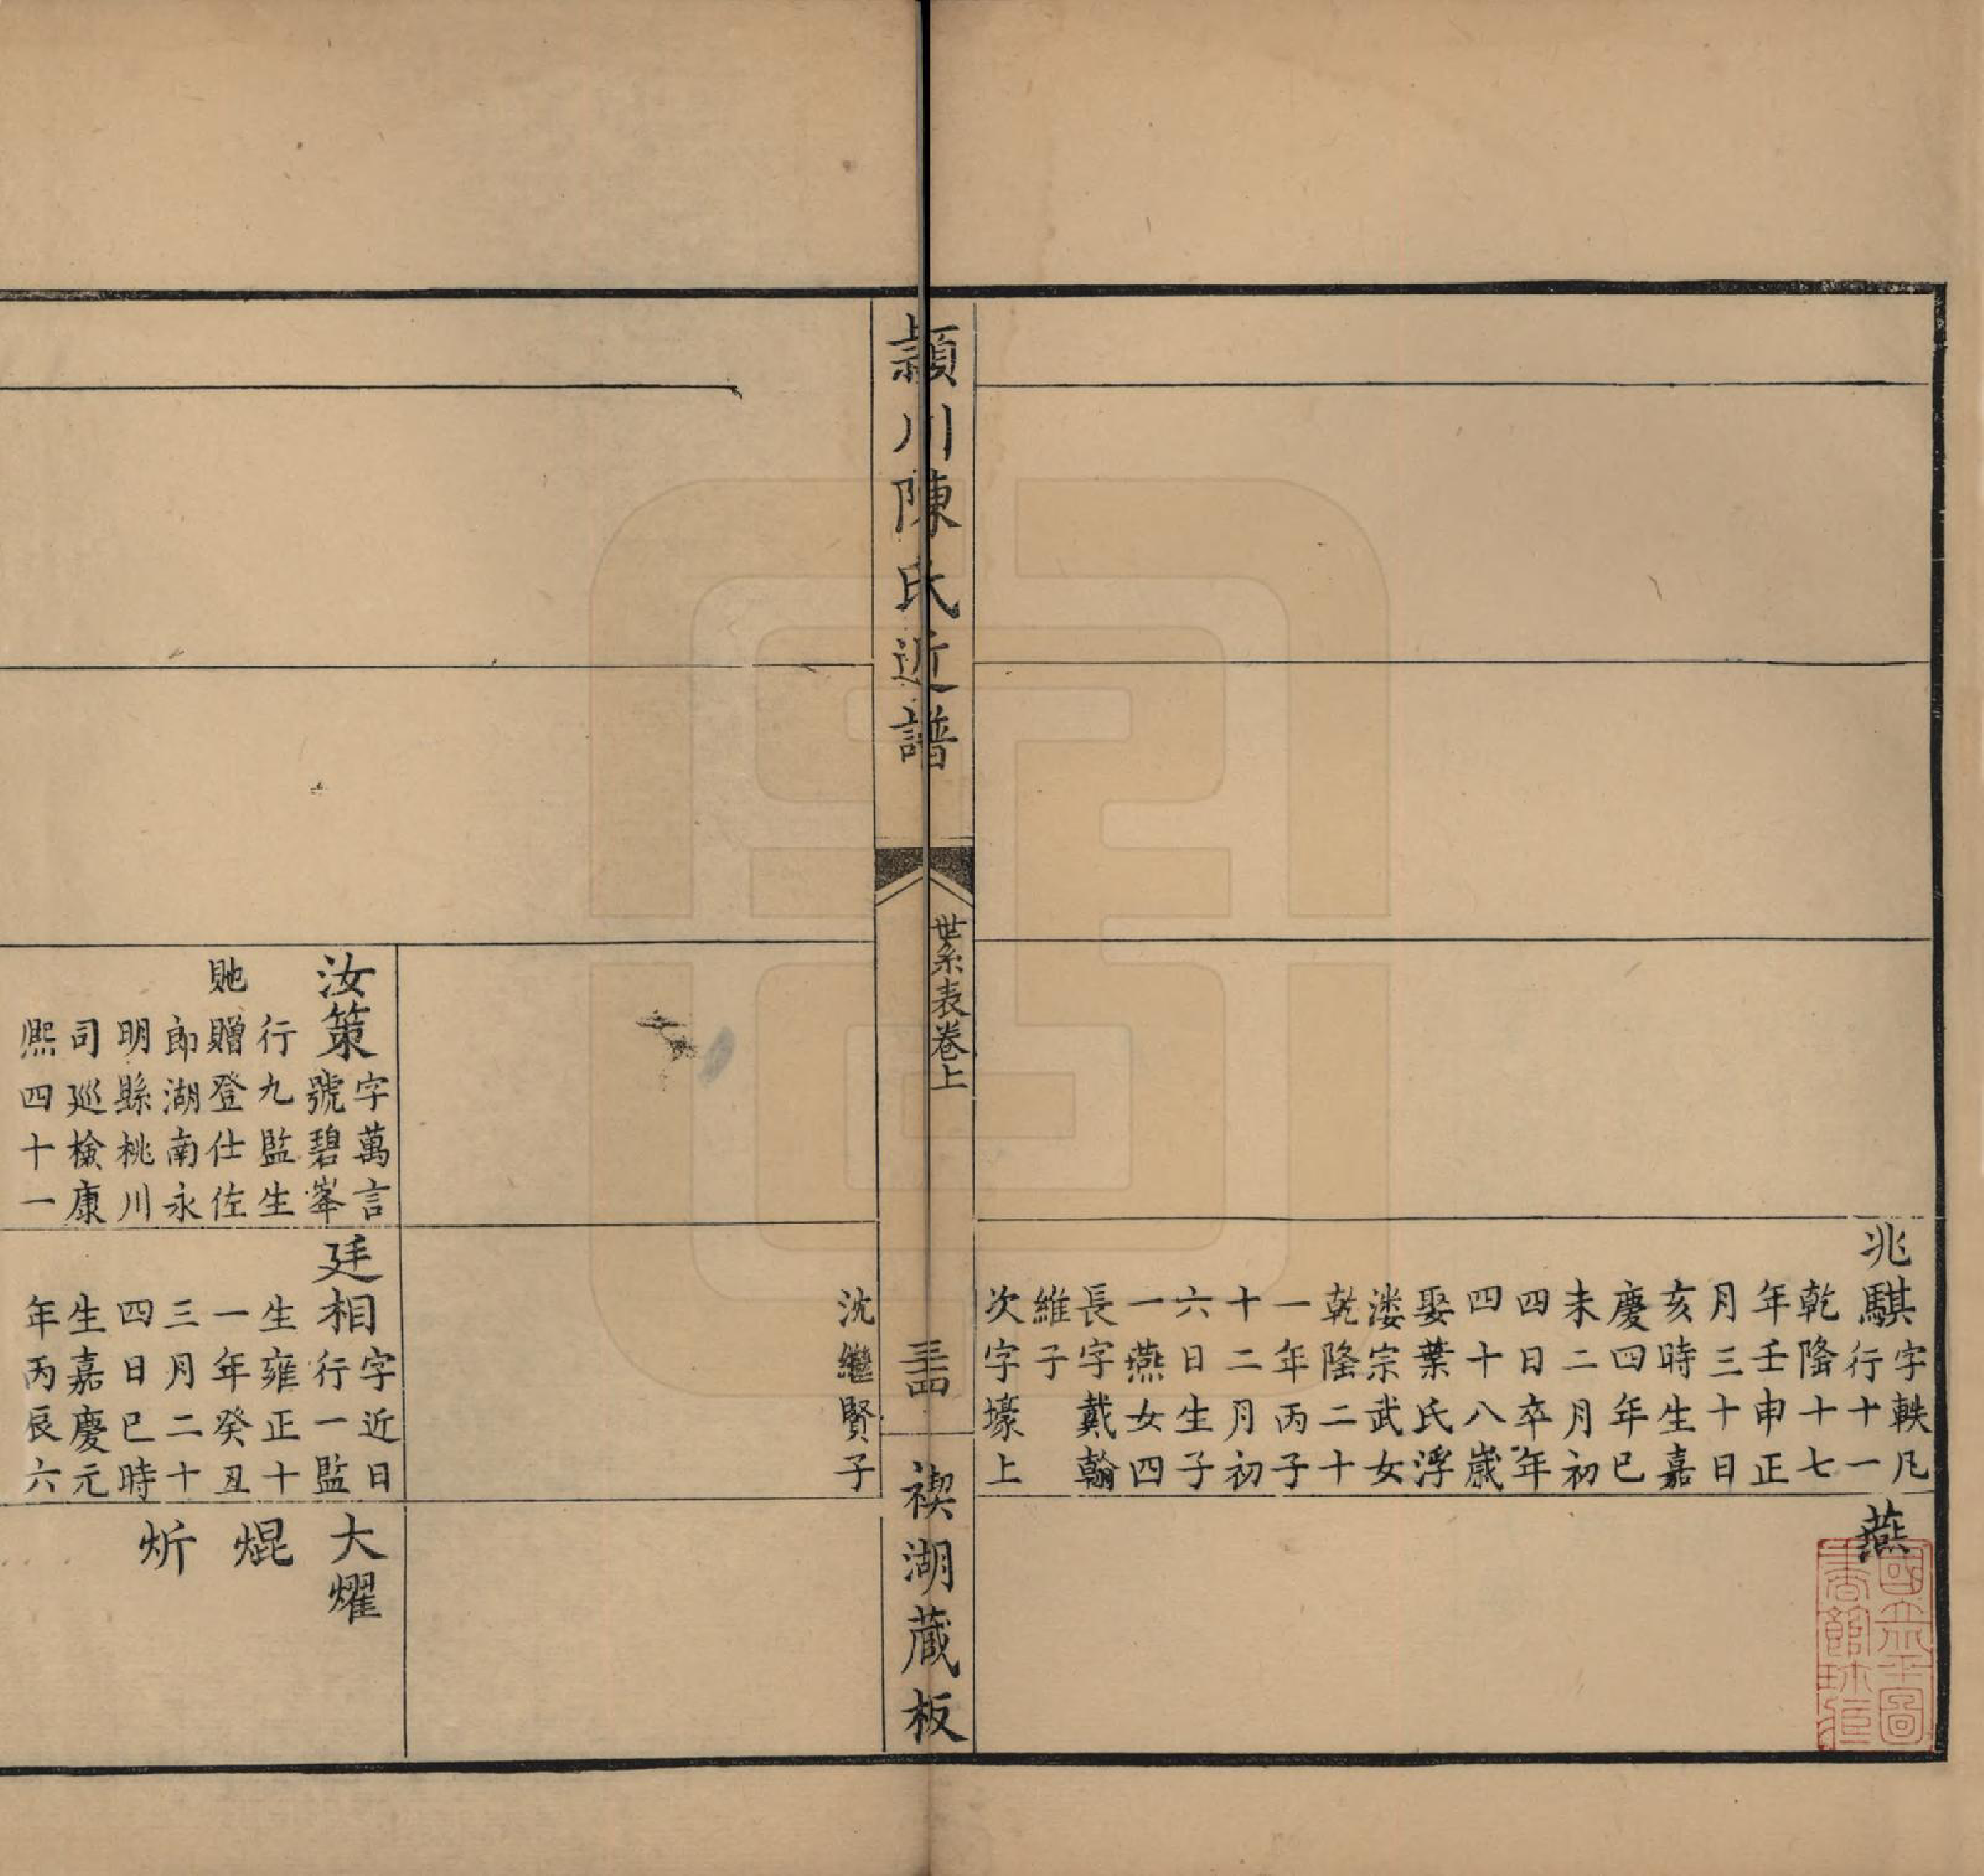 兆騏字軼凡
行十一
乾隆十七
年壬申正
月三十日
亥時生嘉
慶四年已
未二月初
四日卒年
四十八歲
娶葉氏浮
溇宗武女
乾隆二十
一年丙子
十二月初
六日生子
一燕女四
長字戴翰
維子
次字壕上
沈繼賢子
燕
潁川陳氏近譜
世系表卷上
禊湖蔵板
汝策字萬言
號碧峯
行九監生
貤贈登仕佐
郎湖南永
明縣桃川
司巡檢康
熙四十一
廷相字近日
行一監
生雍正十
一年癸丑
三月二十
四日巳時
生嘉慶元
年丙辰六
大燿
焜
炘